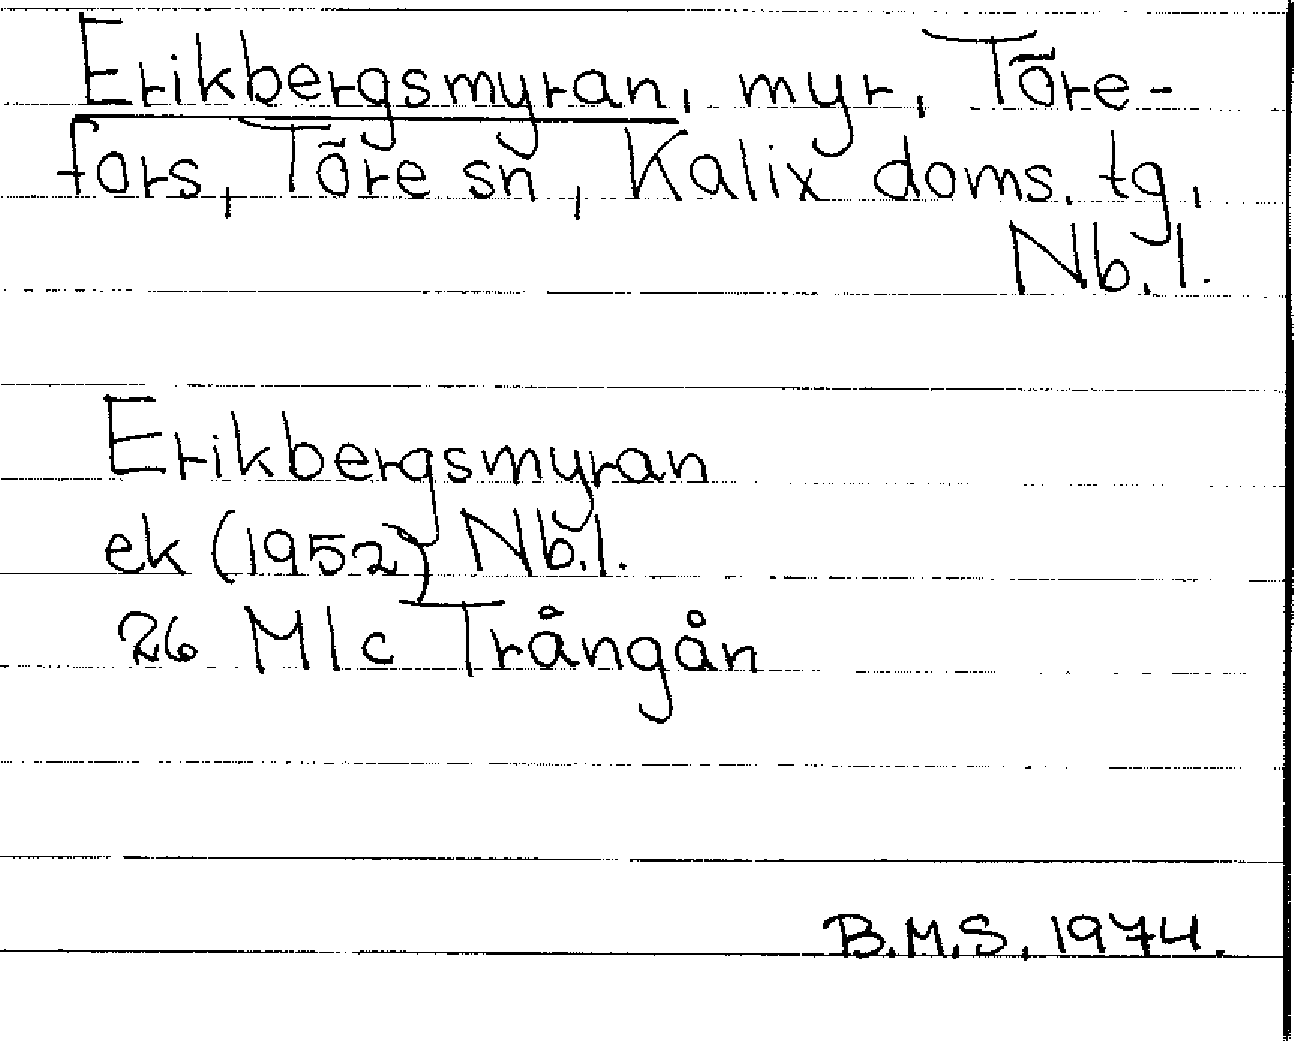 Erikbergsmyran, myr, Töre-
fors, Töre sn, Kalix doms. tg,
Nb. l.
Erikbergsmyran
ek (1952) Nb. l.
26 M/c Trångån
B.M.S. 1974.